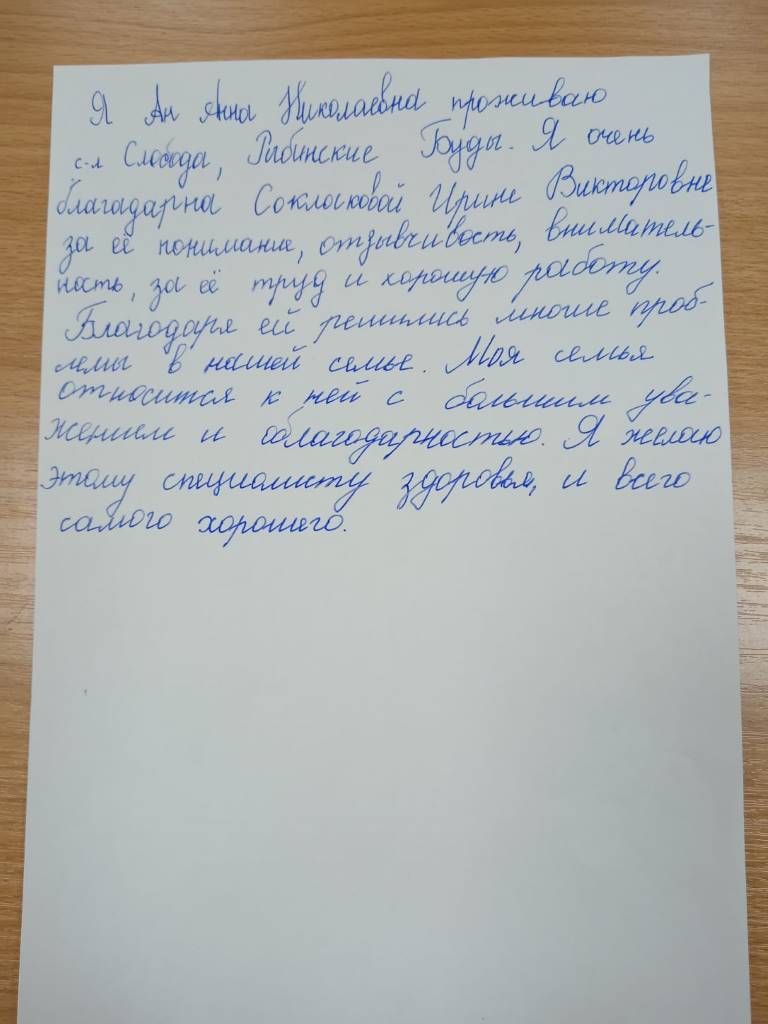 Я Ан Анна Николаевна проживаю
с-л Слобода, Рыбинские Буды. Я очень
благадарна Соклаковой Ирине Викторовне
за её понимание, отзывчивость, вниматель-
ность, за её труд и хорошую работу.
Благодаря ей решились многие проб-
лемы в нашей семье. Моя семья
относится к ней с большим ува-
жением и благодарностью. Я желаю
этому специалисту здоровья, и всего
самого хорошего.